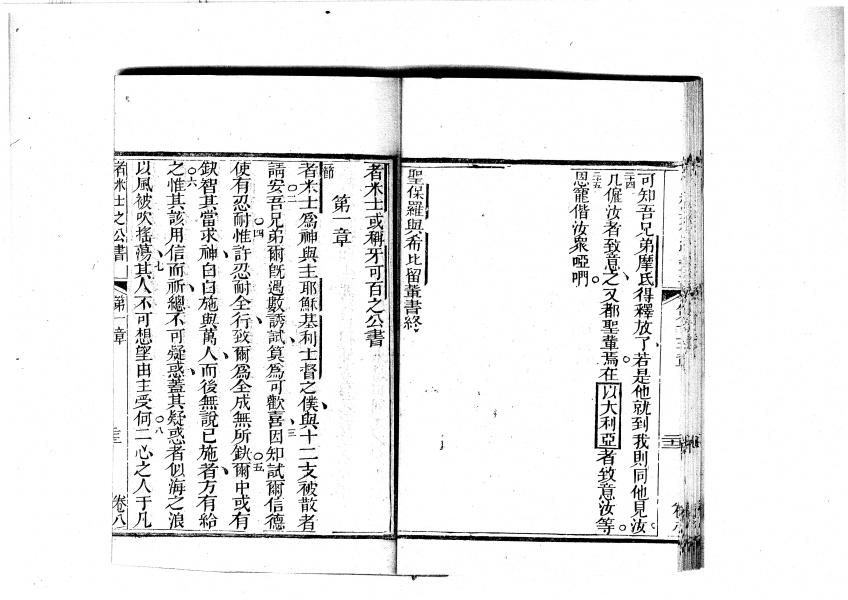 可知吾兄弟摩氏得釋放了若是他就到我則同他見汝。
二十四
凡僱汝者致意之又都聖輩焉。在以大利亞者致意汝等。
二十五
恩寵偕汝衆啞們
聖保羅與希比留輩書終
者米士或稱牙可百之公書
第一章
節
者米士爲神與主耶穌基利士督之僕、與十二支被散者
〇二 、三
請安吾兄弟爾旣遇數誘試、算爲可歡喜因知試爾信德
〇四 〇五
使有忍耐惟許忍耐全行、致爾爲全成無所缺爾中或有
缺智其當求神白白施與萬人、而後無說已施者、方有給
〇六
之惟其該用信而祈、總不可疑惑、蓋其疑惑者似海之浪
、七 〇八
以風被吹搖蕩其人不可想望由主受何二心之人于凡
者米士之公書
第一章
卷八